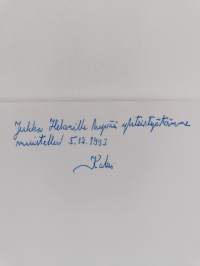 Jukka Helmille hyvää yhteistyötämme
muistellen 5.12.1993